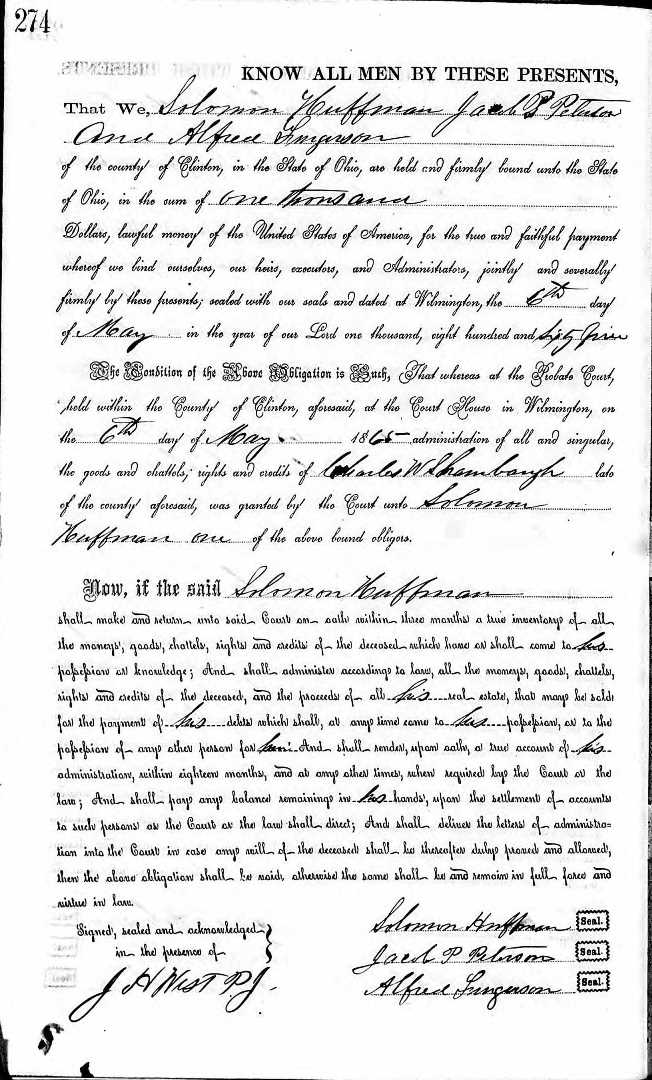 274
KNOW ALL MEN BY THESE PRESENTS,
That We, Solomon Huffman Jacob P Peterson
And Alfred
of the county of Clinton, in the State of Ohio, are held and firmly bound unto the State
of Ohio, in the sum of one thousand
Dollars, lawful money of the United States of America, for the true and faithful payment
whereof we bind ourselves, our heirs, executors, and Administrators, jointly and severally
firmly by these presents; sealed with our seals and dated at Wilmington, the 6th day
of May in the year of our Lord one thousand, eight hundred and sixty five
The Condition of the Above Obligation is Such, That whereas at the Probate Court,
held within the County of Clinton, aforesaid, at the Court House in Wilmington, on
the 6th day of May 1865 administration of all and singular,
the goods and chattels, rights and credits of Charles W Shambaugh late
of the county aforesaid, was granted by the Court unto Solomon
Huffman one of the above bound obligors.
Now, if the said Solomon Huffman
shall make and return unto said Court on oath within three months a true inventory of all
the moneys, goods, chattels, rights and credits of the deceased which have or shall come to his
possession or knowledge; And shall administer according to law, all the moneys, goods, chattels,
rights and credits of the deceased, and the proceeds of all his real estate, that may be sold
for the payment of his debts which shall, at any time come to his possession, or to the
possession of any other person for him And shall render, upon oath, a true account of his
administration, within eighteen months, and at any other times, when required by the Court or the
law; And shall pay any balance remaining in his hands, upon the settlement of accounts
to such persons as the Court or the law shall direct; And shall deliver the letters of administra-
tion into the Court in case any will of the deceased shall be thereafter duly proved and allowed,
then the above obligation shall be void, otherwise the same shall be and remain in full force and
virtue in law.
Signed, sealed and acknowledged
in the presence of
J H West P.J.
Solomon Huffman Seal.
Jacob P Peterson Seal.
Alfred Seal.